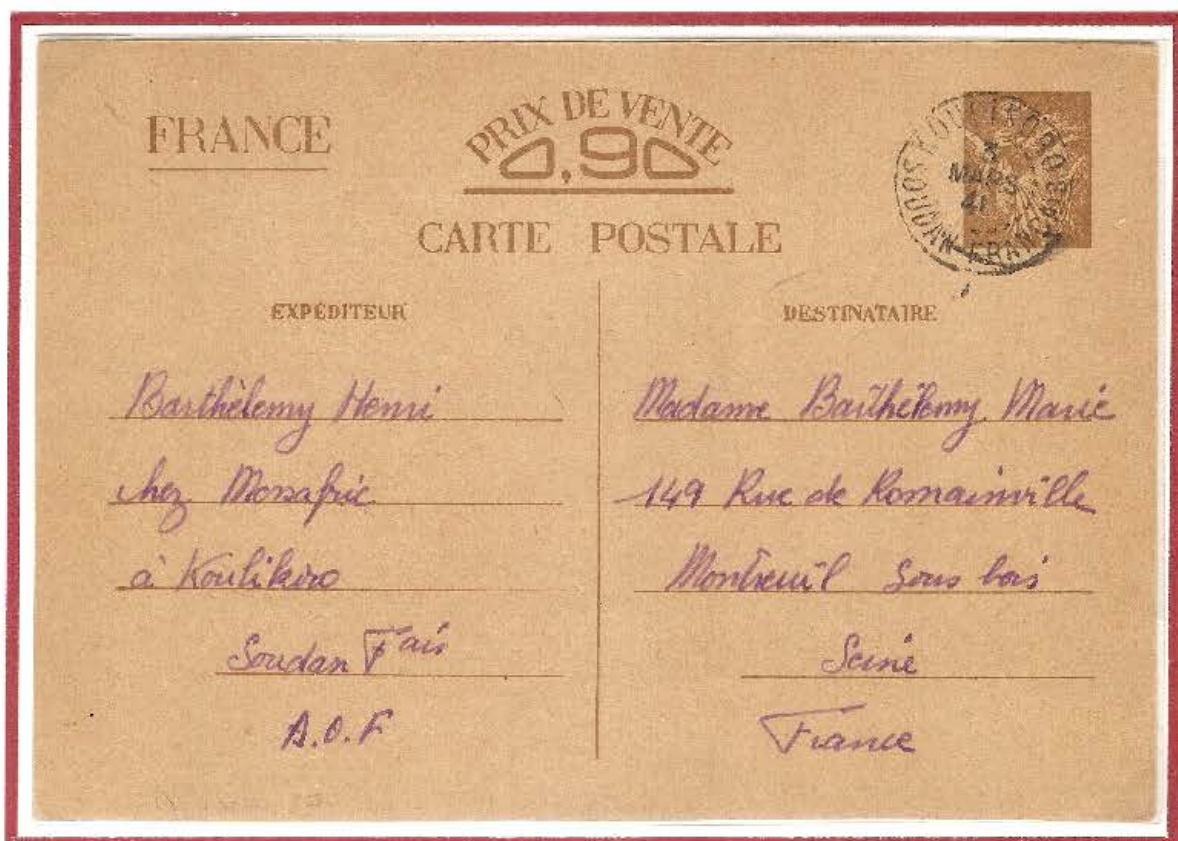 FRANCE
PRIX DE VENTE
0,90
CARTE POSTALE
KOULIKORO
3
MARS
41
SOUDAN FRANÇAIS
EXPÉDITEUR
Barthèlemy Henri
chez Monafric
à Koulikoro
Soudan Fais
A.O.F
DESTINATAIRE
Madame Barthèlemy Marie
149 Rue de Romainville
Montreuil Sous bois
Seine
France